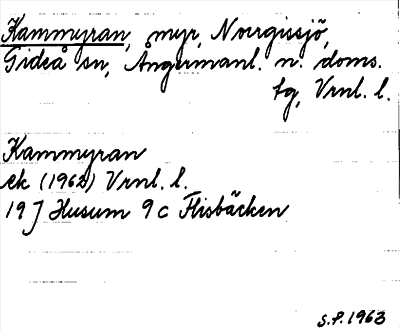 Kammyran, myr, Norrgissjö,
Gideå sn, Ångermanl. n. doms.
tg, Vrnl. l.
Kammyran
ek (1962) Vrnl. l.
19 J Husum 9 c Flisbäcken
S.P. 1963